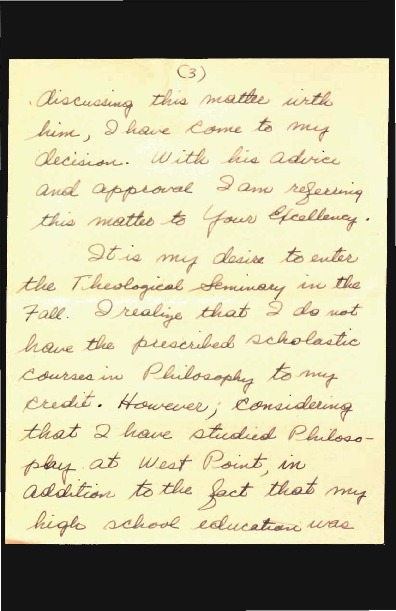 (3)
discussing this matter with
him, I have come to my
decision. With his advice
and approval I am referring
this matter to Your Excellency.
It is my desire to enter
the Theological Seminary in the
Fall. I realize that I do not
have the prescribed scholastic
courses in Philosophy to my
credit. However, considering
that I have studied Philoso-
phy at West Point, in
addition to the fact that my
high school education was